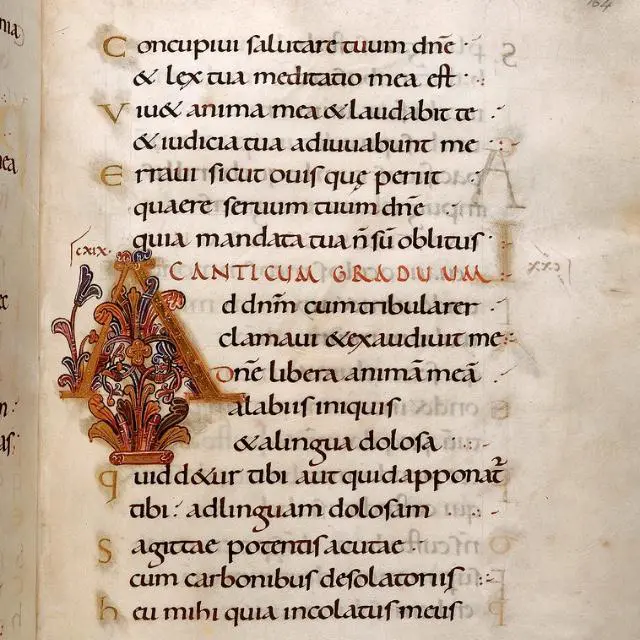 164
Concupiui salutare tuum dñe
& lex tua meditatio mea est
Viu& anima mea & laudabit te
& iudicia tua adiuuabunt me
Erraui sicut ouis quę periit
quaere seruum tuum dñe
quia mandata tua ñ sũ oblitus
cxix
CANTICUM GRADUUM
Ad dnm̃ cum tribularer
clamaui & exaudiuit me
Dñe libera animã meã
a labiis iniquis
& a lingua dolosa
quid d&ur tibi aut quid apponat̃
tibi: ad linguam dolosam
Sagittae potentis acutae
cum carbonibus desolatoriis
heu mihi quia incolatus meus